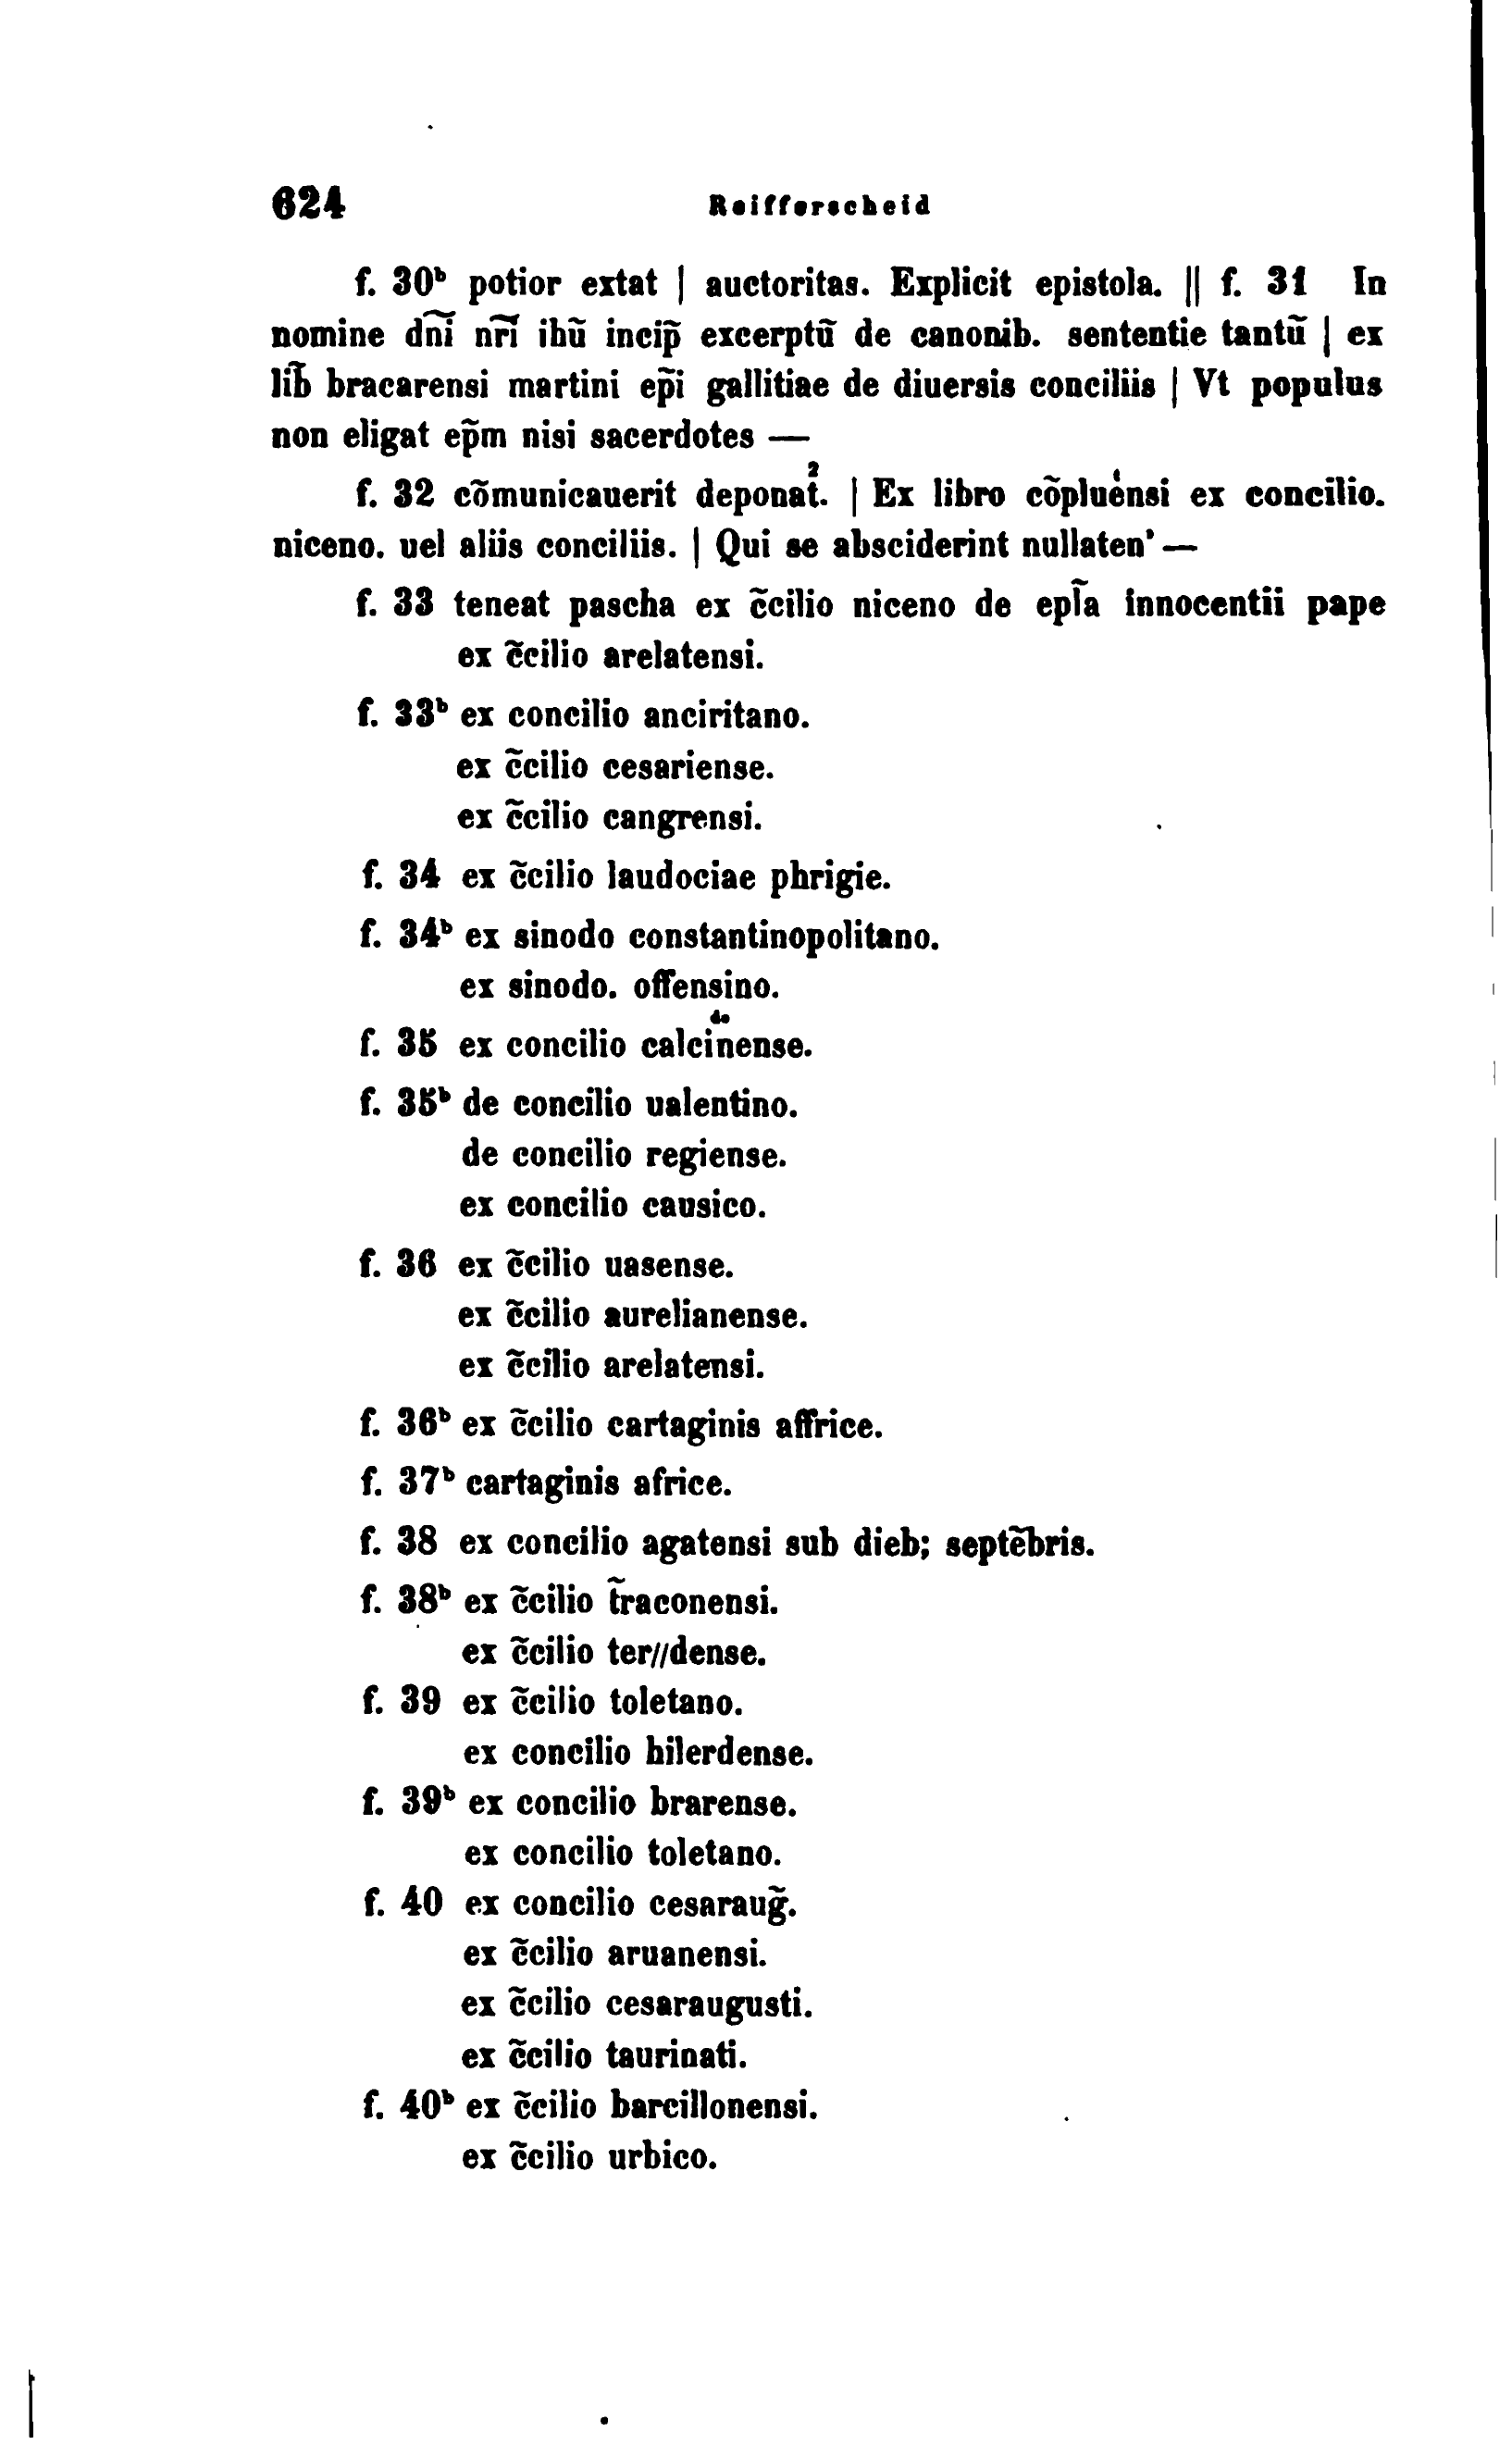 624 Reifferscheid
f. 30ᵇ potior extat | auctoritas. Explicit epistola. || f. 31 In
nomine dñĩ nr̃ĩ ihũ incip̃ excerptũ de canonib. sententie tantũ | ex
lib̃ bracarensi martini ep̃i gallitiae de diuersis conciliis | Vt populus
non eligat ep̃m nisi sacerdotes —
f. 32 cõmunicauerit deponat̉. | Ex libro cõpluėnsi ex concilio.
niceno. uel aliis conciliis. | Qui se absciderint nullaten' —
f. 33 teneat pascha ex c̃cilio niceno de epl̃a innocentii pape
ex c̃cilio arelatensi.
f. 33ᵇ ex concilio anciritano.
ex c̃cilio cesariense.
ex c̃cilio cangrensi.
f. 34 ex c̃cilio laudociae phrigie.
f. 34ᵇ ex sinodo constantinopolitano.
ex sinodo. offensino.
f. 35 ex concilio calcinense.
f. 35ᵇ de concilio ualentino.
de concilio regiense.
ex concilio causico.
f. 36 ex c̃cilio uasense.
ex c̃cilio aurelianense.
ex c̃cilio arelatensi.
f. 36ᵇ ex c̃cilio cartaginis affrice.
f. 37ᵇ cartaginis africe.
f. 38 ex concilio agatensi sub dieb; septẽbris.
f. 38ᵇ ex c̃cilio t̃raconensi.
ex c̃cilio ter//dense.
f. 39 ex c̃cilio toletano.
ex concilio hilerdense.
f. 39ᵇ ex concilio brarense.
ex concilio toletano.
f. 40 ex concilio cesaraug̃.
ex c̃cilio aruanensi.
ex c̃cilio cesaraugusti.
ex c̃cilio taurinati.
f. 40ᵇ ex c̃cilio barcillonensi.
ex c̃cilio urbico.